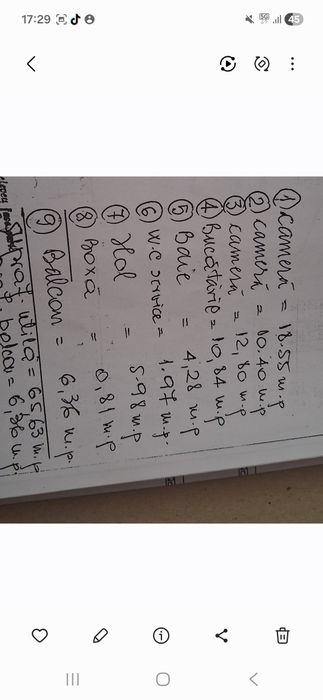 17:29
45
① Cameră = 18.55 m.p
② Cameră = 10.40 m.p
③ Cameră = 12,80 m.p
④ Bucătărie = 10,84 m.p
⑤ Baie = 4,28 m.p
⑥ W.C serviciu = 1.97 m.p.
⑦ Hol = 5.98 m.p
⑧ Boxă = 0,81 m.p
⑨ Balcon = 6.36 m.p.
Supraf. utilă = 65,63 m.p.
balcon = 6,36 m.p.